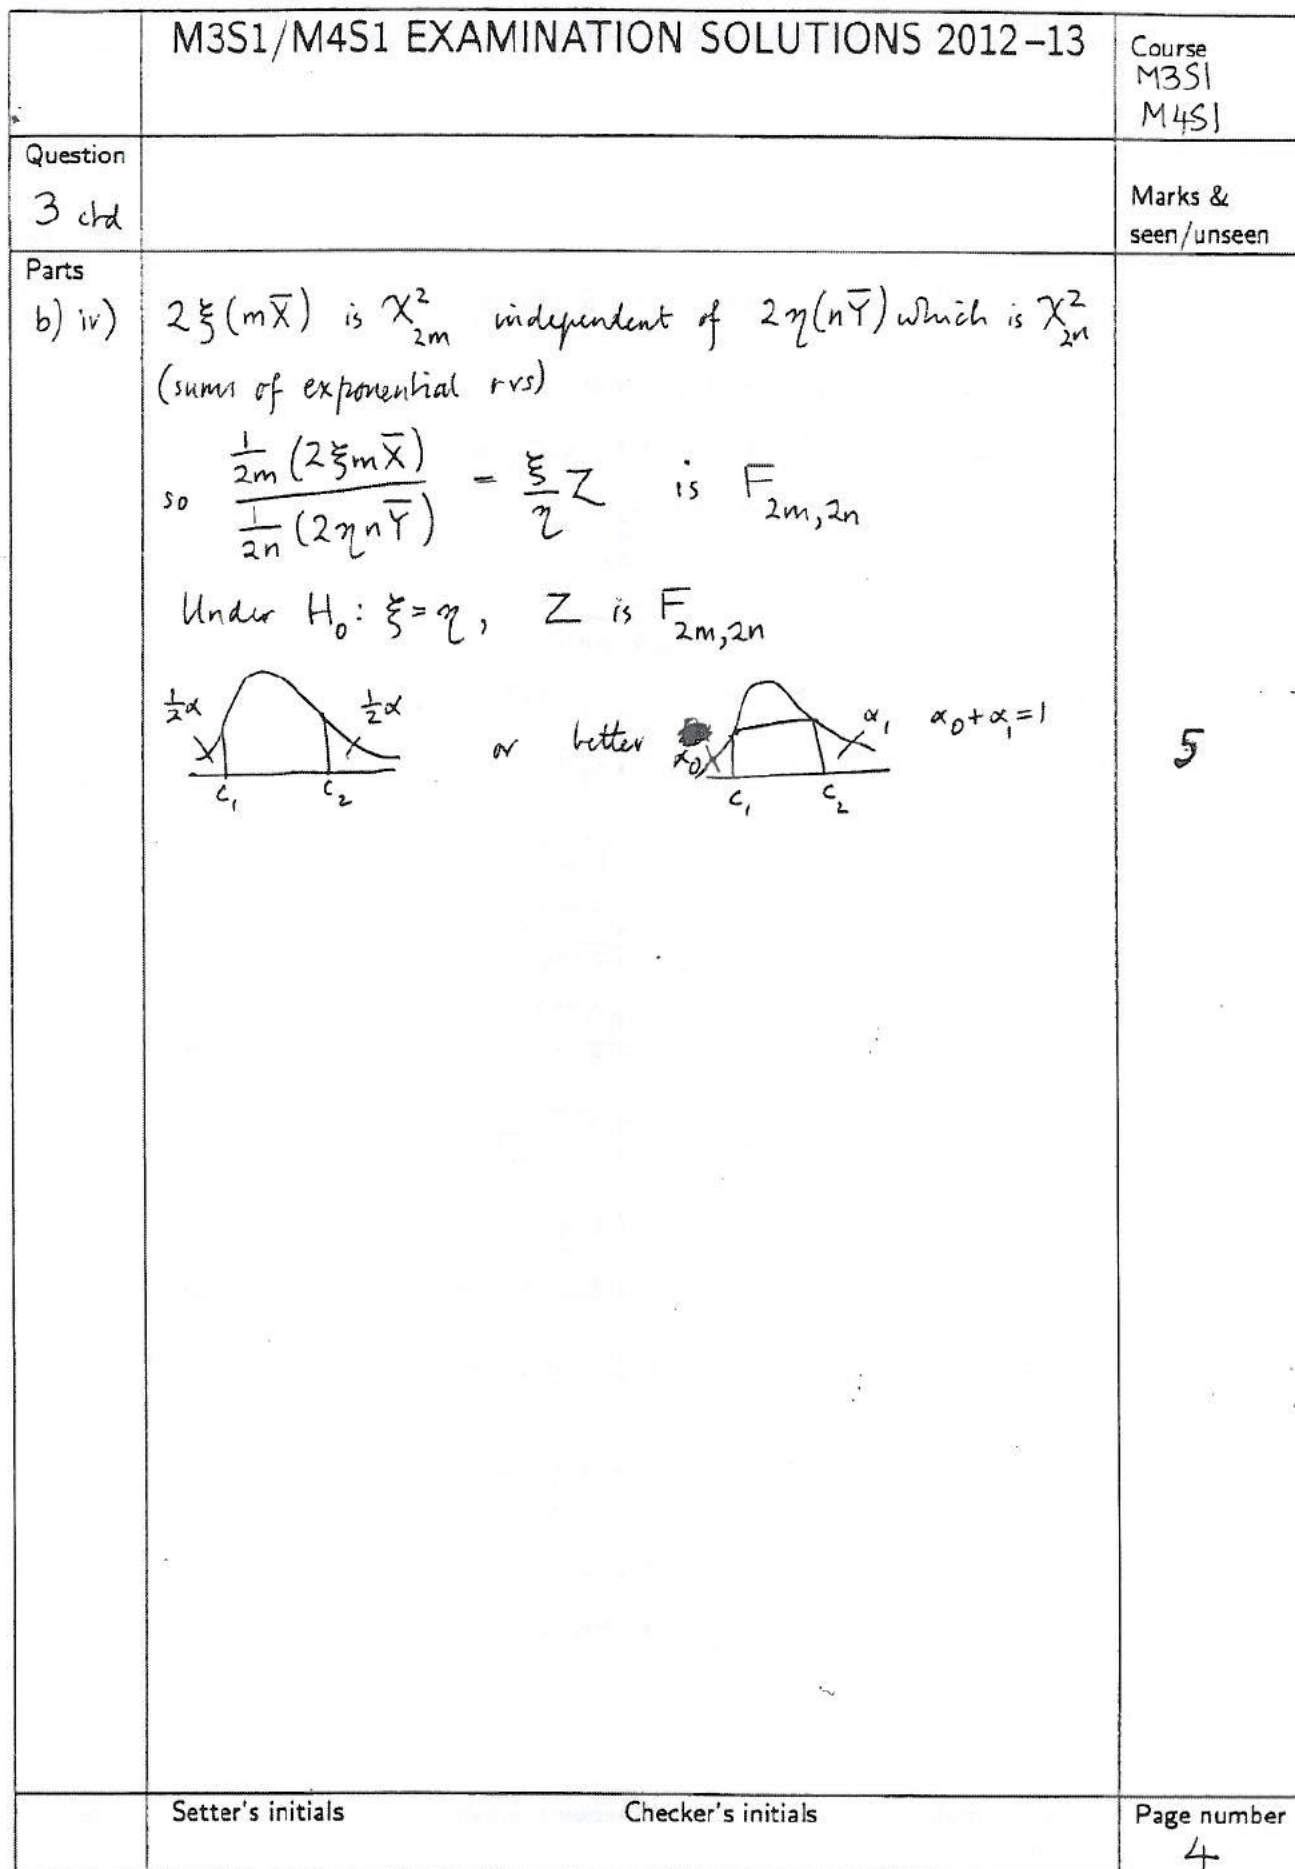 M3S1/M4S1 EXAMINATION SOLUTIONS 2012–13
Course
M3S1
M4S1
Question
3 ctd
Marks &
seen/unseen
Parts
b) iv) 2ξ(mX̅) is χ²₂ₘ independent of 2η(nY̅) which is χ²₂ₙ
(sums of exponential rvs)
so \frac{\frac{1}{2m}(2ξmX̅)}{\frac{1}{2n}(2ηnY̅)} = \frac{ξ}{η} Z is F_{2m,2n}
Under H₀: ξ=η, Z is F_{2m,2n}
½α ½α or better α₀ α₁ α₀+α₁=1
c₁ c₂ c₁ c₂
5
Setter's initials Checker's initials Page number
4